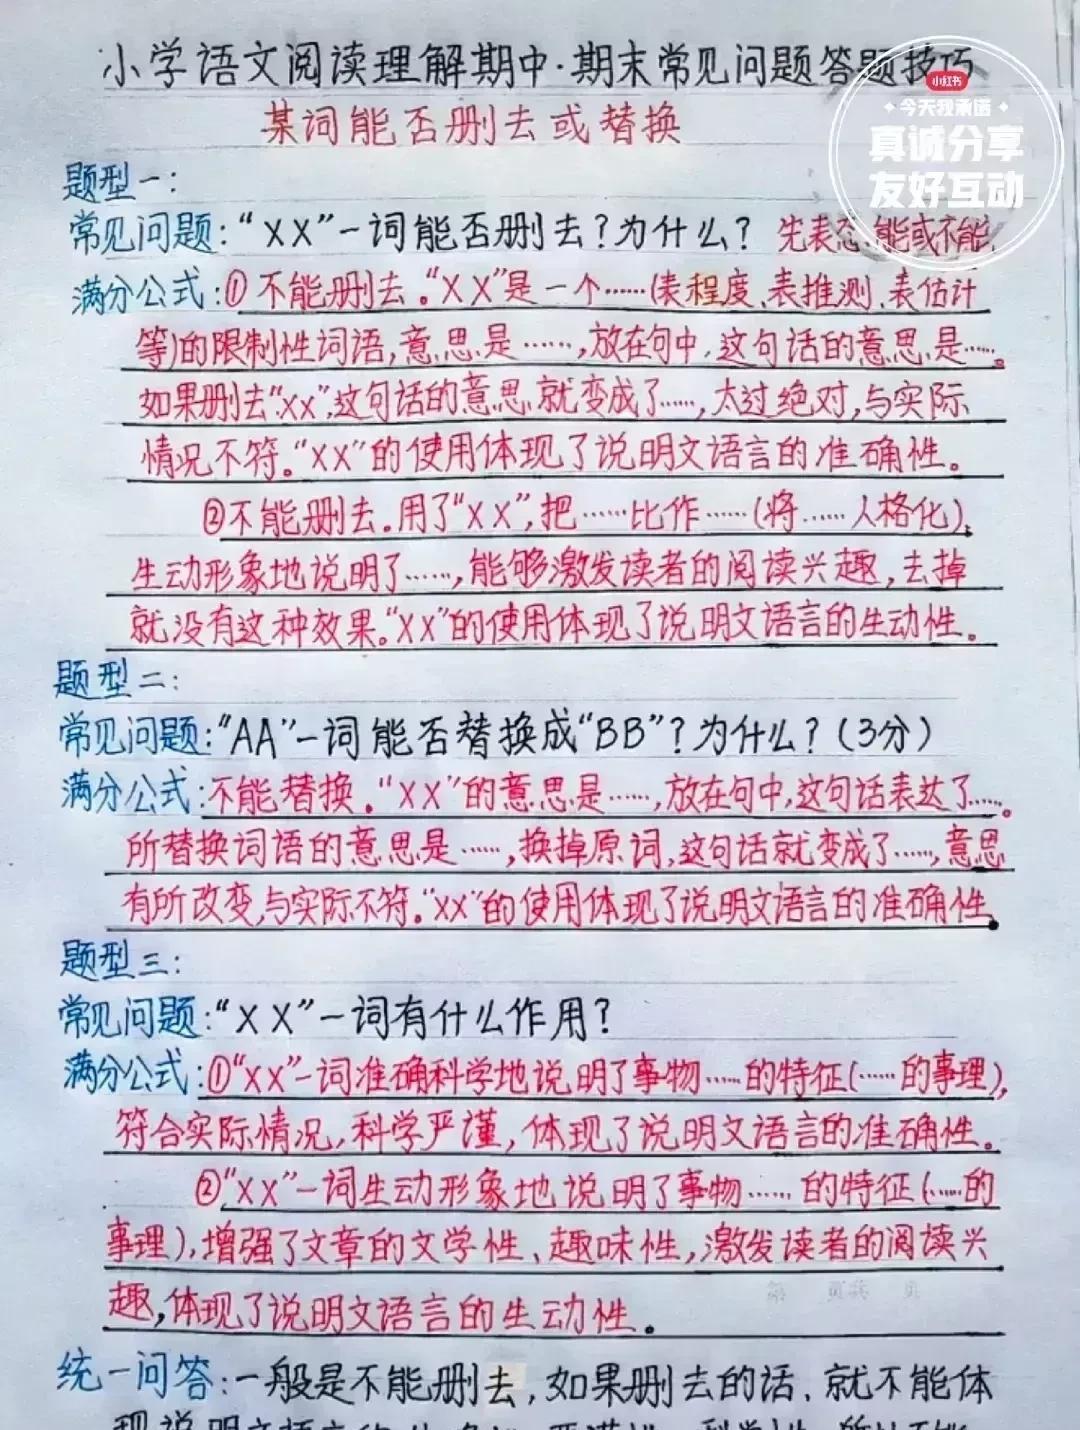 小学语文阅读理解期中·期末常见问题答题技巧
小红书
今天我承诺
真诚分享
友好互动
某词能否删去或替换
题型一:
常见问题:“XX”一词能否删去?为什么? 先表态,能或不能,
满分公式:①不能删去。“XX”是一个……(表程度、表推测、表估计
等)的限制性词语,意思是……,放在句中,这句话的意思是……。
如果删去“XX”,这句话的意思就变成了……,太过绝对,与实际
情况不符。“XX”的使用体现了说明文语言的准确性。
②不能删去。用了“XX”,把……比作……(将……人格化),
生动形象地说明了……,能够激发读者的阅读兴趣,去掉
就没有这种效果。“XX”的使用体现了说明文语言的生动性。
题型二:
常见问题:“AA”一词能否替换成“BB”?为什么?(3分)
满分公式:不能替换。“XX”的意思是……,放在句中,这句话表达了……。
所替换词语的意思是……,换掉原词,这句话就变成了……,意思
有所改变,与实际不符。“XX”的使用体现了说明文语言的准确性。
题型三:
常见问题:“XX”一词有什么作用?
满分公式:①“XX”一词准确科学地说明了事物……的特征(……的事理),
符合实际情况,科学严谨,体现了说明文语言的准确性。
②“XX”一词生动形象地说明了事物……的特征(……的
事理),增强了文章的文学性、趣味性,激发读者的阅读兴
趣,体现了说明文语言的生动性。
第 页共 页
统一问答:一般是不能删去,如果删去的话,就不能体